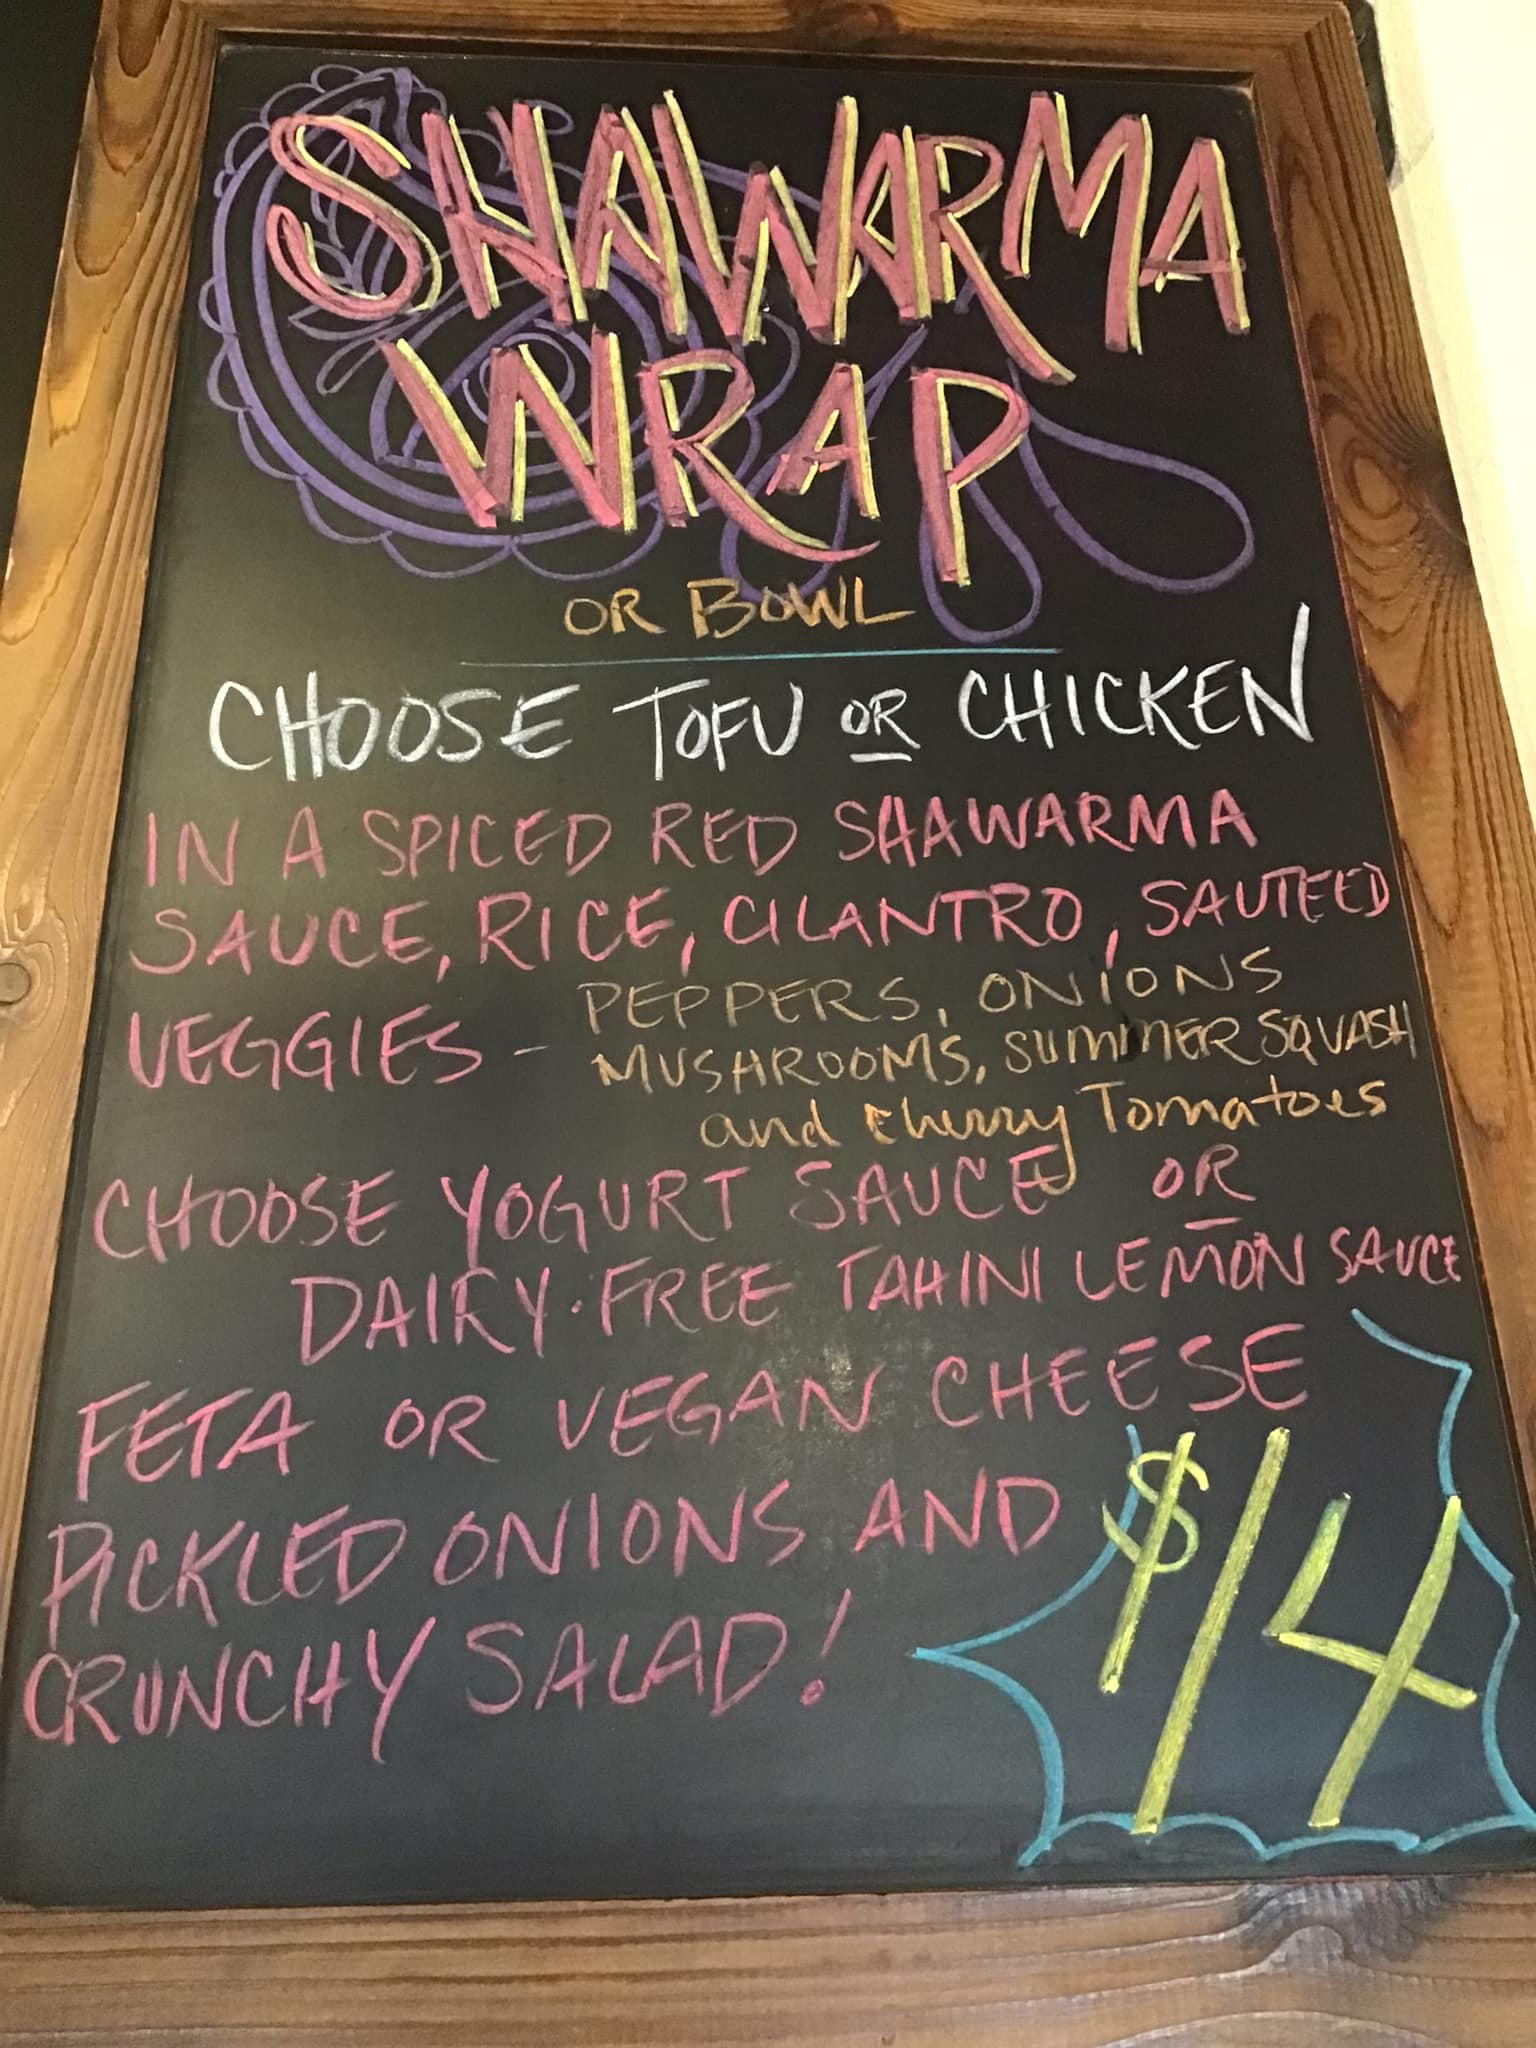 SHAWARMA
WRAP
OR BOWL
CHOOSE TOFU OR CHICKEN
IN A SPICED RED SHAWARMA
SAUCE, RICE, CILANTRO, SAUTEED
VEGGIES - PEPPERS, ONIONS
MUSHROOMS, SUMMER SQUASH
and cherry Tomatoes
CHOOSE YOGURT SAUCE OR
DAIRY-FREE TAHINI LEMON SAUCE
FETA OR VEGAN CHEESE
PICKLED ONIONS AND
CRUNCHY SALAD!
$14